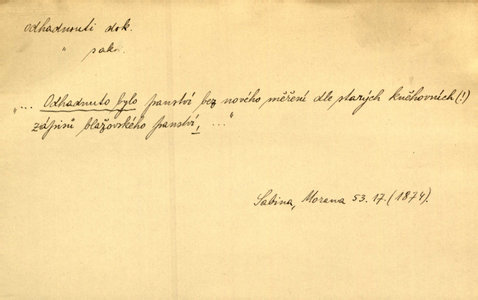 odhadnouti dok.
" pak.
"... Odhadnuto bylo panství bez nového měření dle starých kněhovních (!)
zápisů blažovského panství, ..."
Sabina, Morana 53.17. (1874).